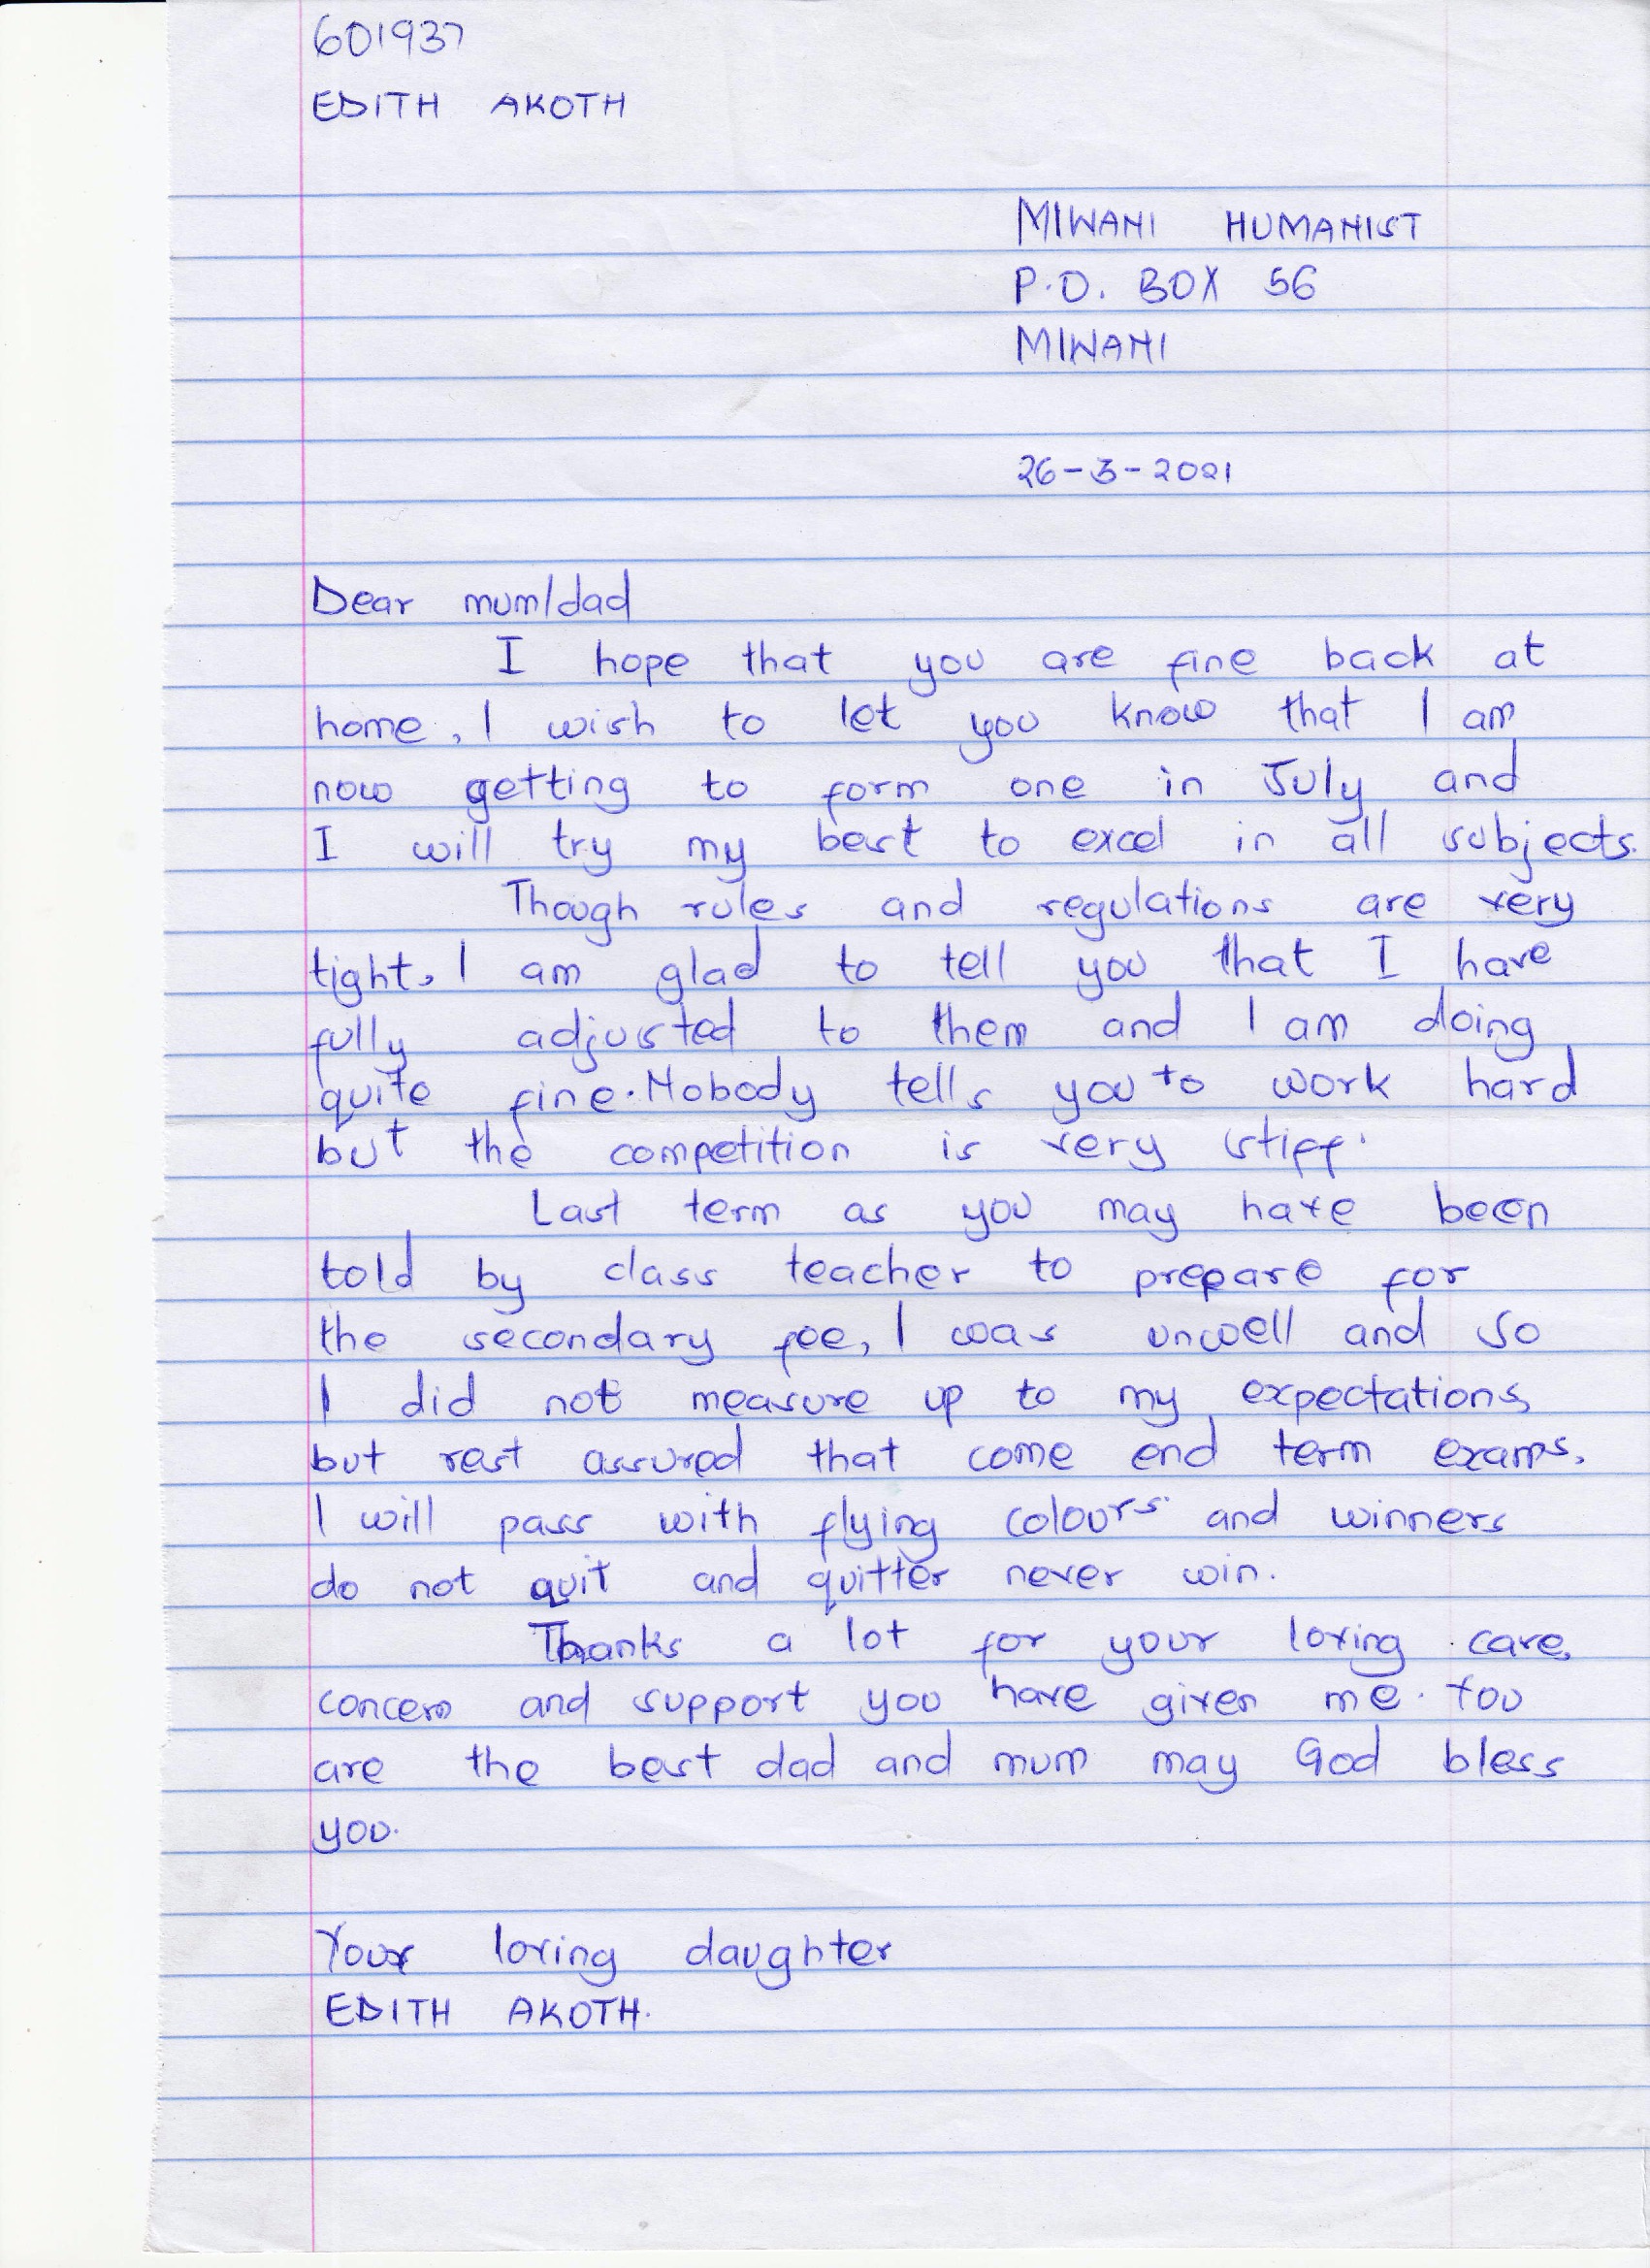 601937
EDITH AKOTH
MIWANI HUMANIST
P.O. BOX 56
MIWANI
26-3-2021
Dear mum/dad
I hope that you are fine back at
home, I wish to let you know that I am
now getting to form one in July and
I will try my best to excel in all subjects.
Though rules and regulations are very
tight, I am glad to tell you that I have
fully adjusted to them and I am doing
quite fine. Nobody tells you to work hard
but the competition is very stiff.
Last term as you may have been
told by class teacher to prepare for
the secondary fee, I was unwell and so
I did not measure up to my expectations,
but rest assured that come end term exams.
I will pass with flying colours and winners
do not quit and quitter never win.
Thanks a lot for your loving care,
concern and support you have given me. You
are the best dad and mum may God bless
you.
Your loving daughter
EDITH AKOTH.